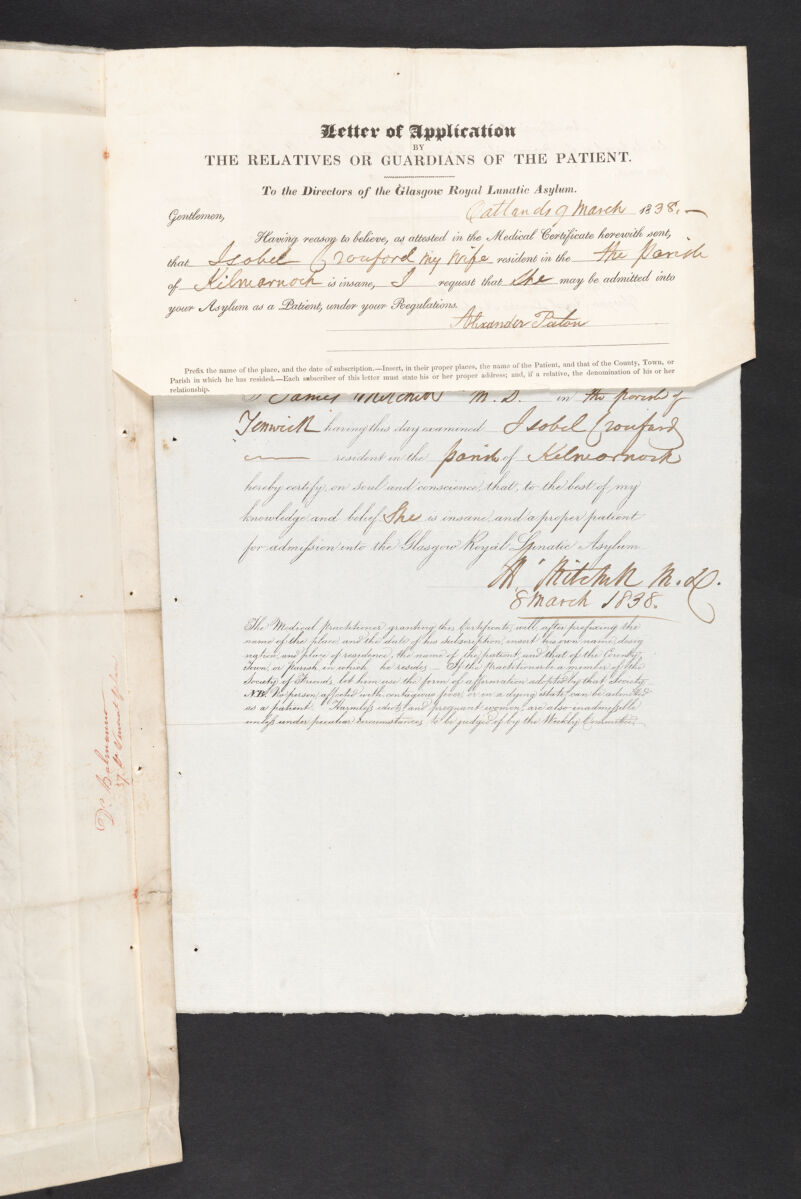 Letter of Application
BY
THE RELATIVES OR GUARDIANS OF THE PATIENT.
To the Directors of the Glasgow Royal Lunatic Asylum.
Oatlands 9 March 1838.—
Gentlemen,
Having reason to believe, as attested in the Medical Certificate herewith sent,
that Isobel Crouford my wife resident in the the Parish
of Kilmarnock is insane, I request that She may be admitted into
your Asylum as a Patient, under your Regulations.
Alexander Paton
Prefix the name of the place, and the date of subscription.—Insert, in their proper places, the name of the Patient, and that of the County, Town, or
Parish in which he has resided.—Each subscriber of this letter must state his or her proper address; and, if a relative, the denomination of his or her
relationship.
I James M. D. in the parish of
Fenwick having this day examined Isobel Croufard
resident in the parish of Kilmarnock
hereby certify, on soul and conscience, that, to the best of my
knowledge and belief She is insane, and a proper patient
for admission into the Glasgow Royal Lunatic Asylum
Mitchell M.D.
8 March 1838.
The Medical practitioner granting this Certificate, will, after prefixing the
name of the place, and the date of his subscription, insert his own name, desig
nation, and place of residence, the name of the patient, and that of the County,
Town, or Parish in which he resides.— If the practitioner be a member of the
Society of Friends, let him use the form of affirmation adopted by that Society.
NB. No person, affected with contagious fever, or in a dying state, can be admitted
as a patient. Harmless idiots, and pregnant women, are also inadmissible
unless under peculiar circumstances, to be judged of by the Weekly Committee.
Dr. Balmanno